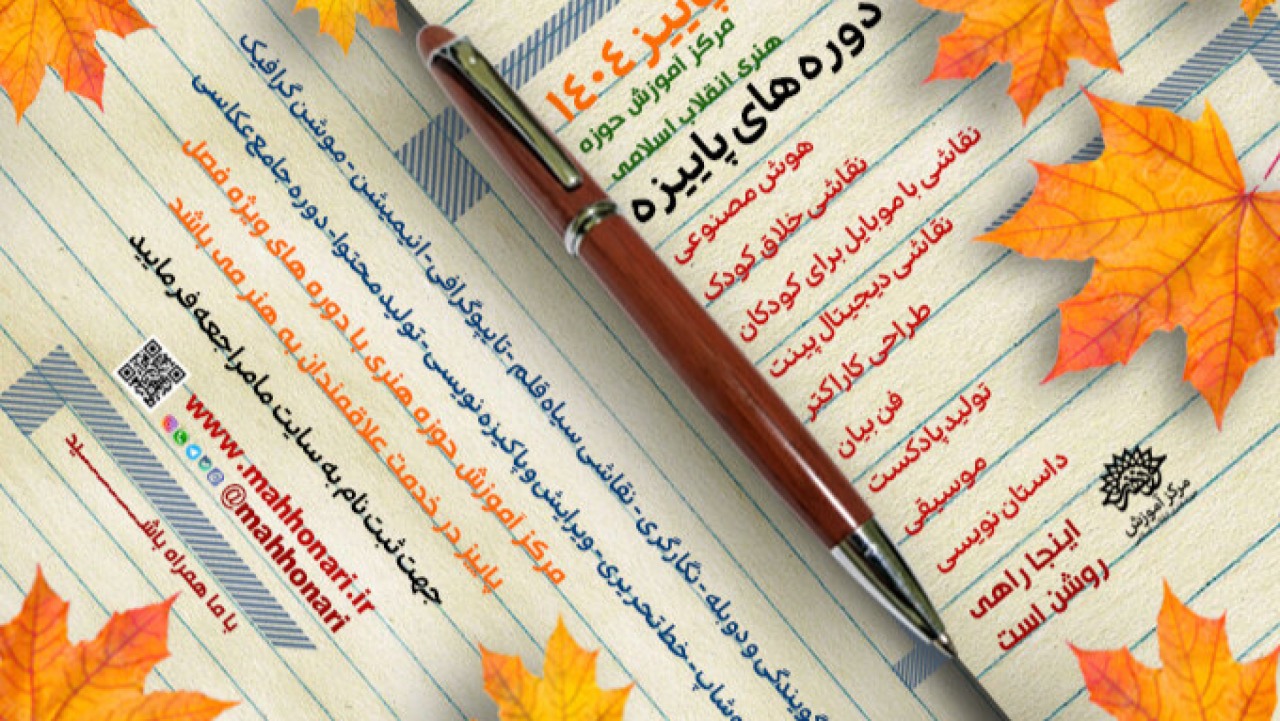 پاییز ۱۴۰۴
مرکز آموزش حوزه
هنری انقلاب اسلامی
دوره های پاییزه
هوش مصنوعی
نقاشی خلاق کودک
نقاشی با موبایل برای کودکان
نقاشی دیجیتال پینت
طراحی کاراکتر
فن بیان
تولید پادکست
موسیقی
داستان نویسی
اینجا راهی
روشن است
مرکز آموزش
گویندگی و دوبله - نگارگری - نقاشی سیاه قلم - تایپوگرافی - انیمیشن - موشن گرافیک
خط تحریری - ویرایش و پاکیزه نویسی - تولید محتوا - دوره جامع عکاسی
مرکز آموزش حوزه هنری با دوره های ویژه فصل
پاییز در خدمت علاقمندان به هنر می باشد
جهت ثبت نام به سایت ما مراجعه فرمایید
www.mahhonari.ir
@mahhonari
با ما همراه باشـــــید